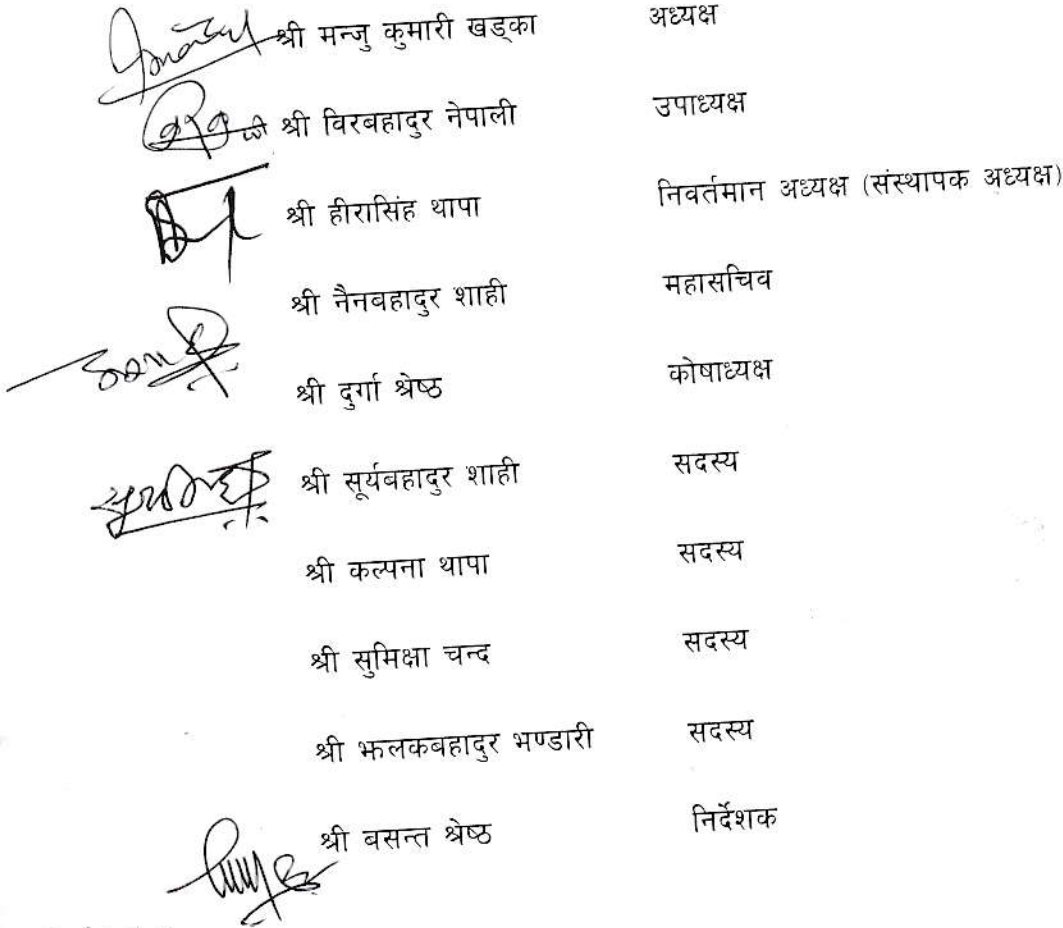 श्री मन्जु कुमारी खड्का अध्यक्ष
श्री विरबहादुर नेपाली उपाध्यक्ष
श्री हीरासिंह थापा निवर्तमान अध्यक्ष (संस्थापक अध्यक्ष)
श्री नैनबहादुर शाही महासचिव
श्री दुर्गा श्रेष्ठ कोषाध्यक्ष
श्री सूर्यबहादुर शाही सदस्य
श्री कल्पना थापा सदस्य
श्री सुमिक्षा चन्द सदस्य
श्री झलकबहादुर भण्डारी सदस्य
श्री बसन्त श्रेष्ठ निर्देशक